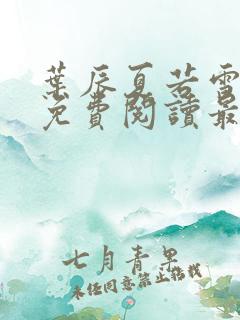 葉辰夏若雪
免費閱讀最
七月青果
未经同意禁止转载